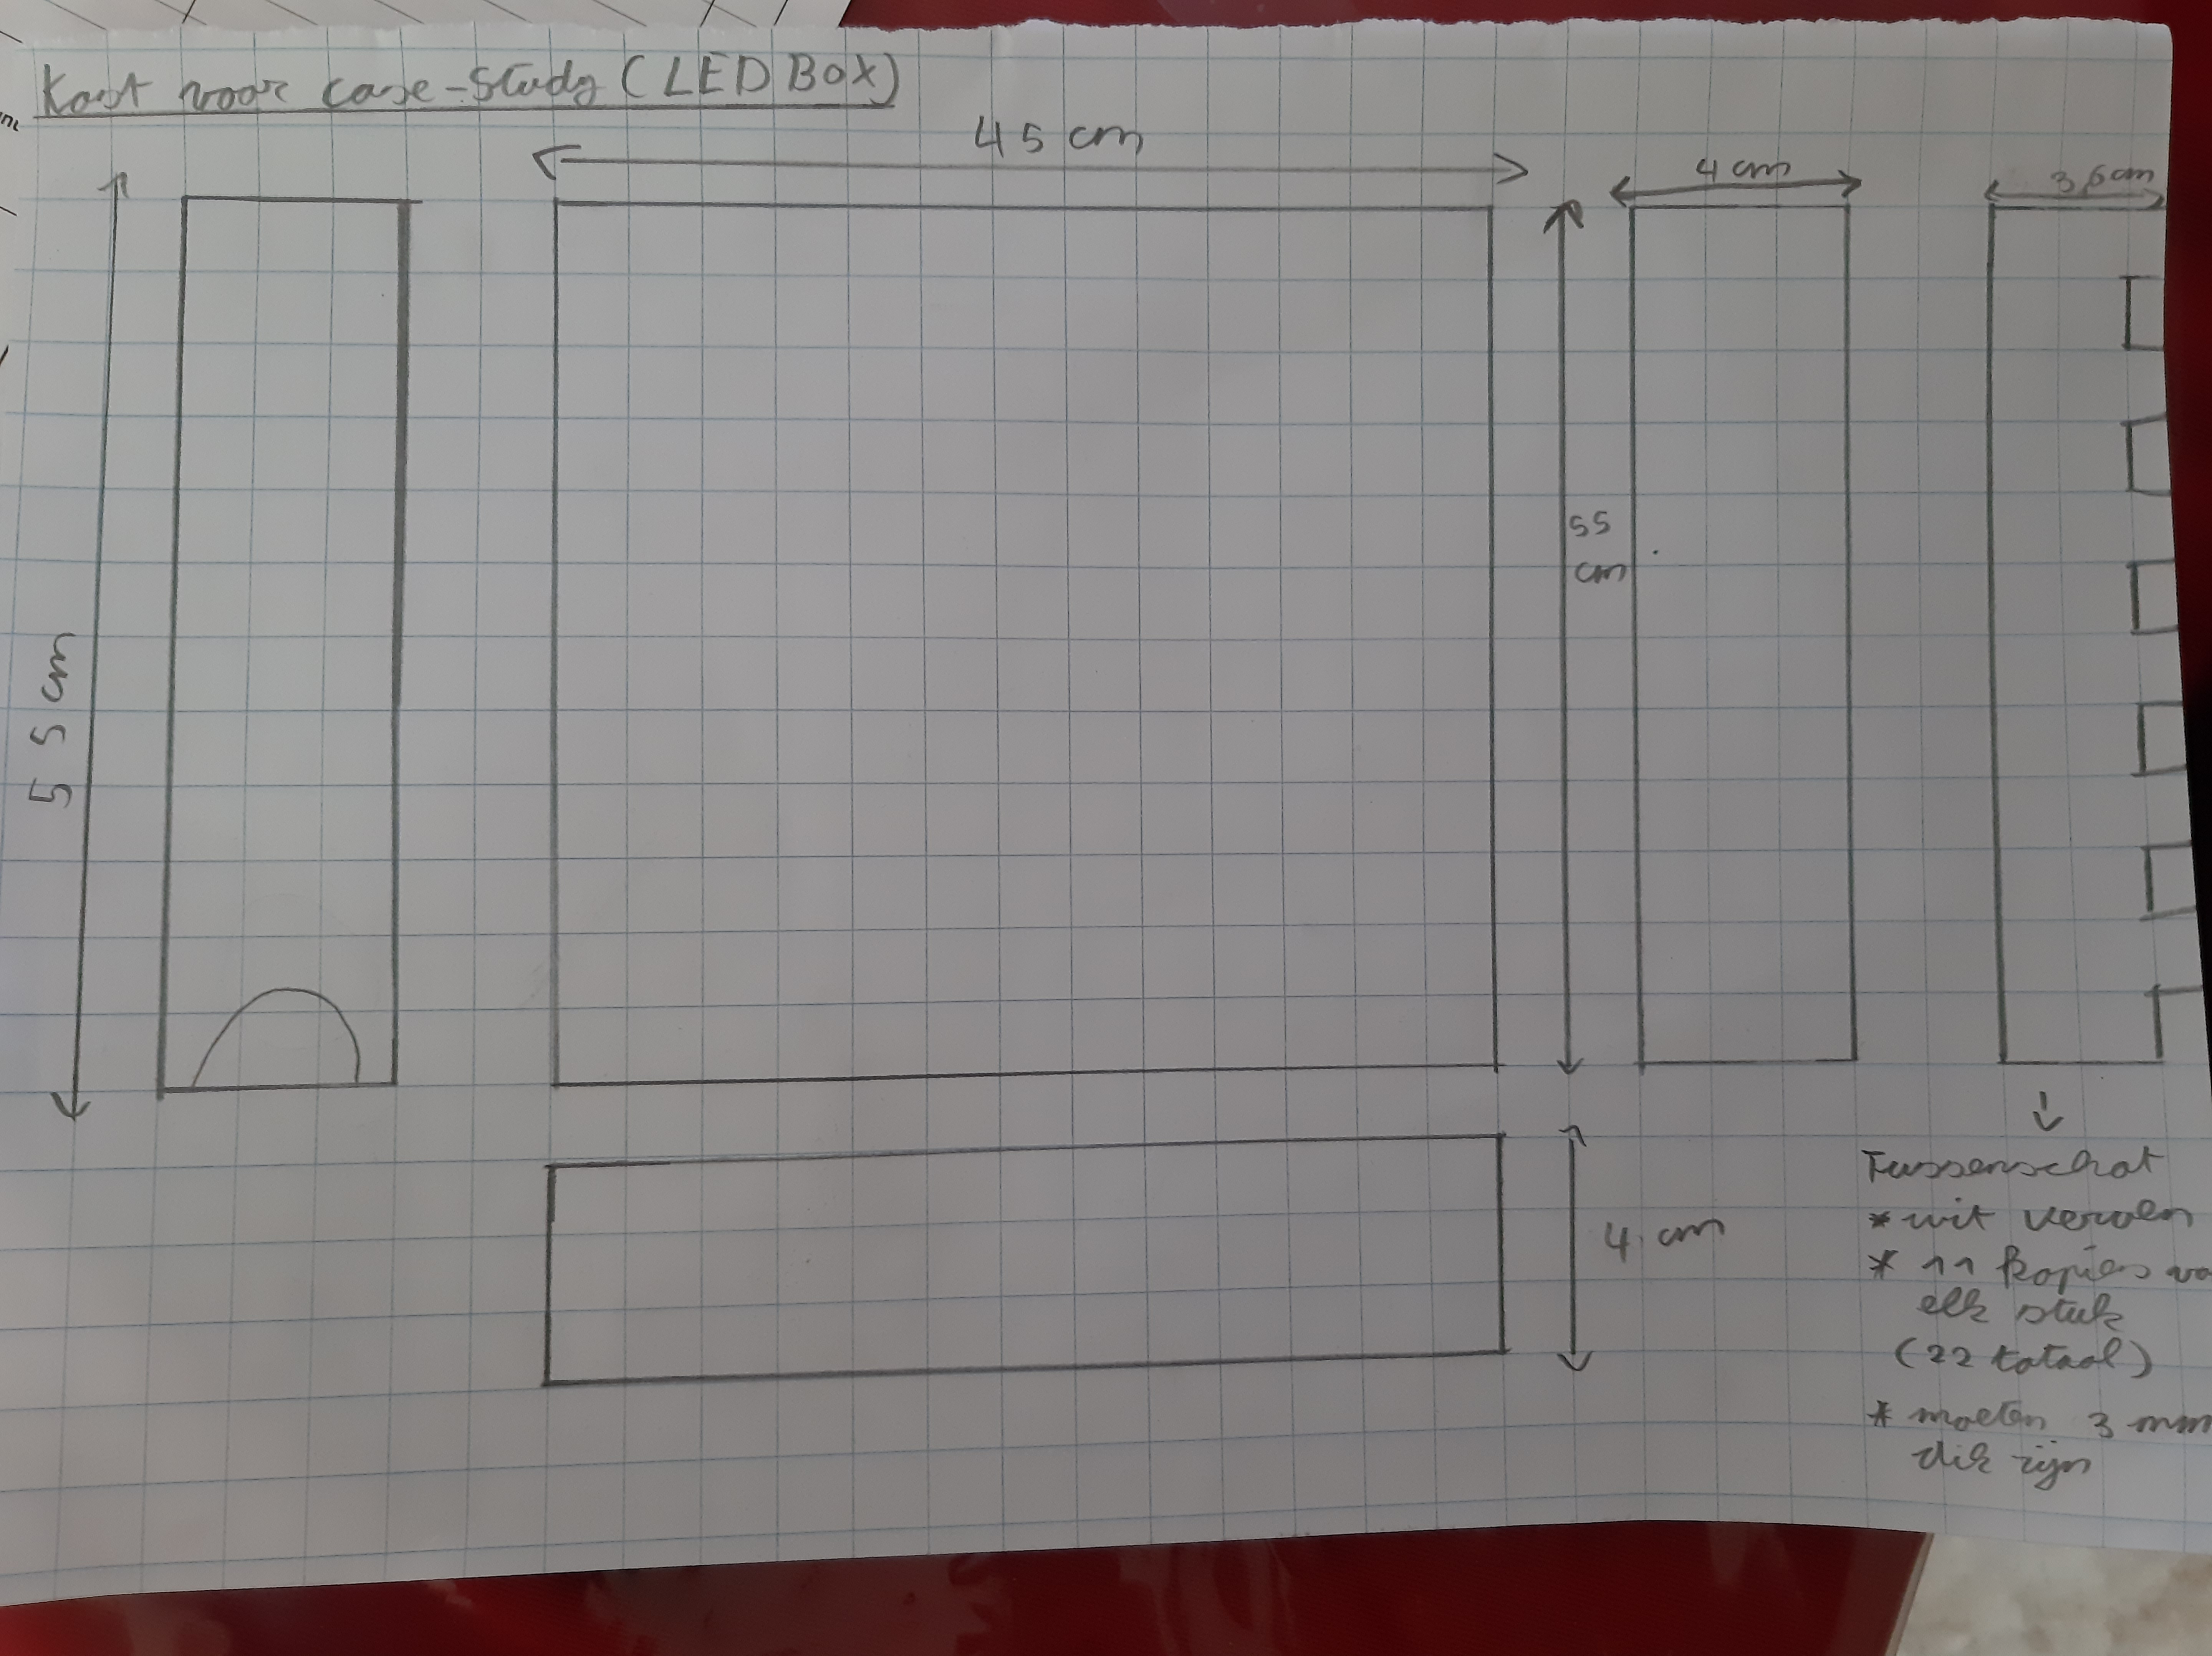 Kast voor case-study (LED BOX)
45 cm
55 cm
55
cm
4 cm
3,6 cm
4 cm
Tussenschot
* uit
* 11 kopiës
elk stuk
(22 totaal)
* moeten 3 mm
dik zijn